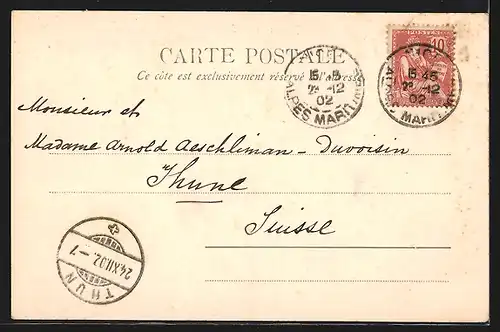 CARTE POSTALE
Ce côté est exclusivement réservé à l'adresse
POSTES
10
NICE
15 45
12
02
ALPES MARIT.
15 45
12
02
ALPES MARIT.
Monsieur et
Madame Arnold Aeschliman-Duvoisin
Thune
Suisse
24.XII.02.-7
THUN